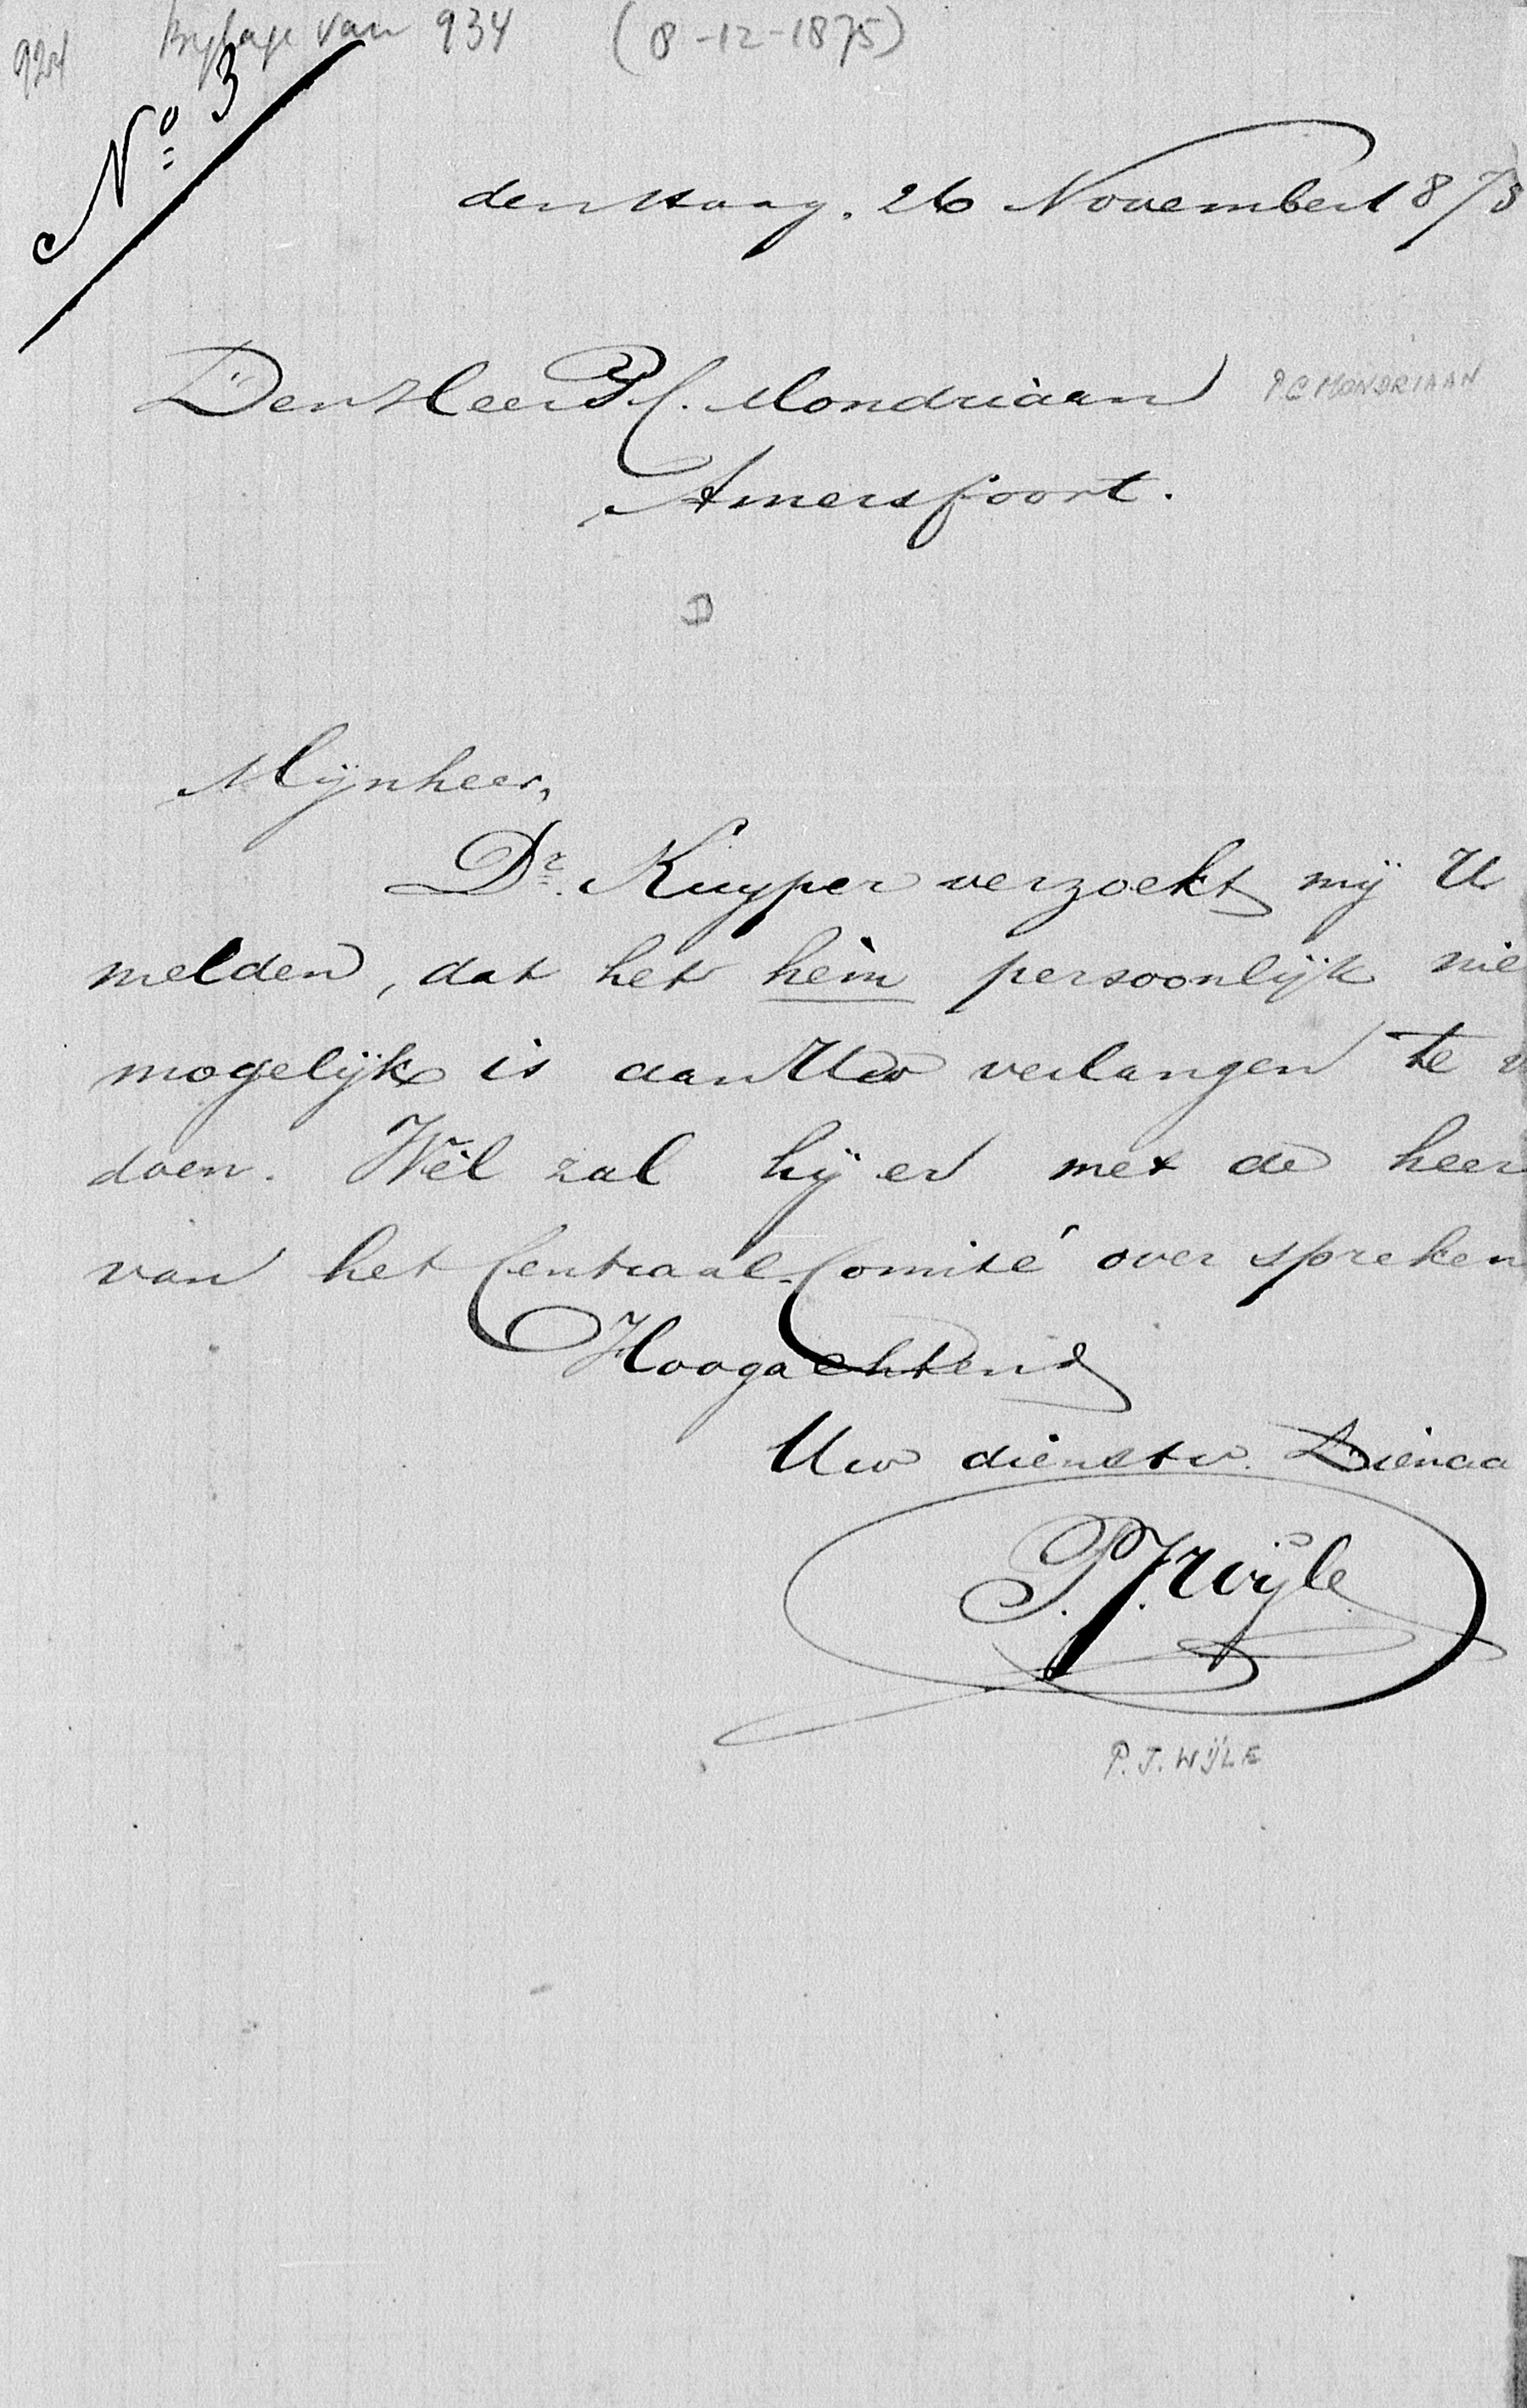 924 Bijlage van 934 (8-12-1875)
No 3
den Haag. 26 November 1875
Den Heer P C. Mondriaan
P C MONDRIAAN
Amersfoort.
Mijnheer,
Dr. Kuyper verzoekt mij U
melden, dat het hem persoonlijk nie
mogelijk is aan Uw verlangen te v
doen. Wèl zal hij er met de heer
van het Centraal-Comité over spreken
Hoogachtend
Uw dienstw. Dienaa
P. J. Wijle
P. J. WIJLE